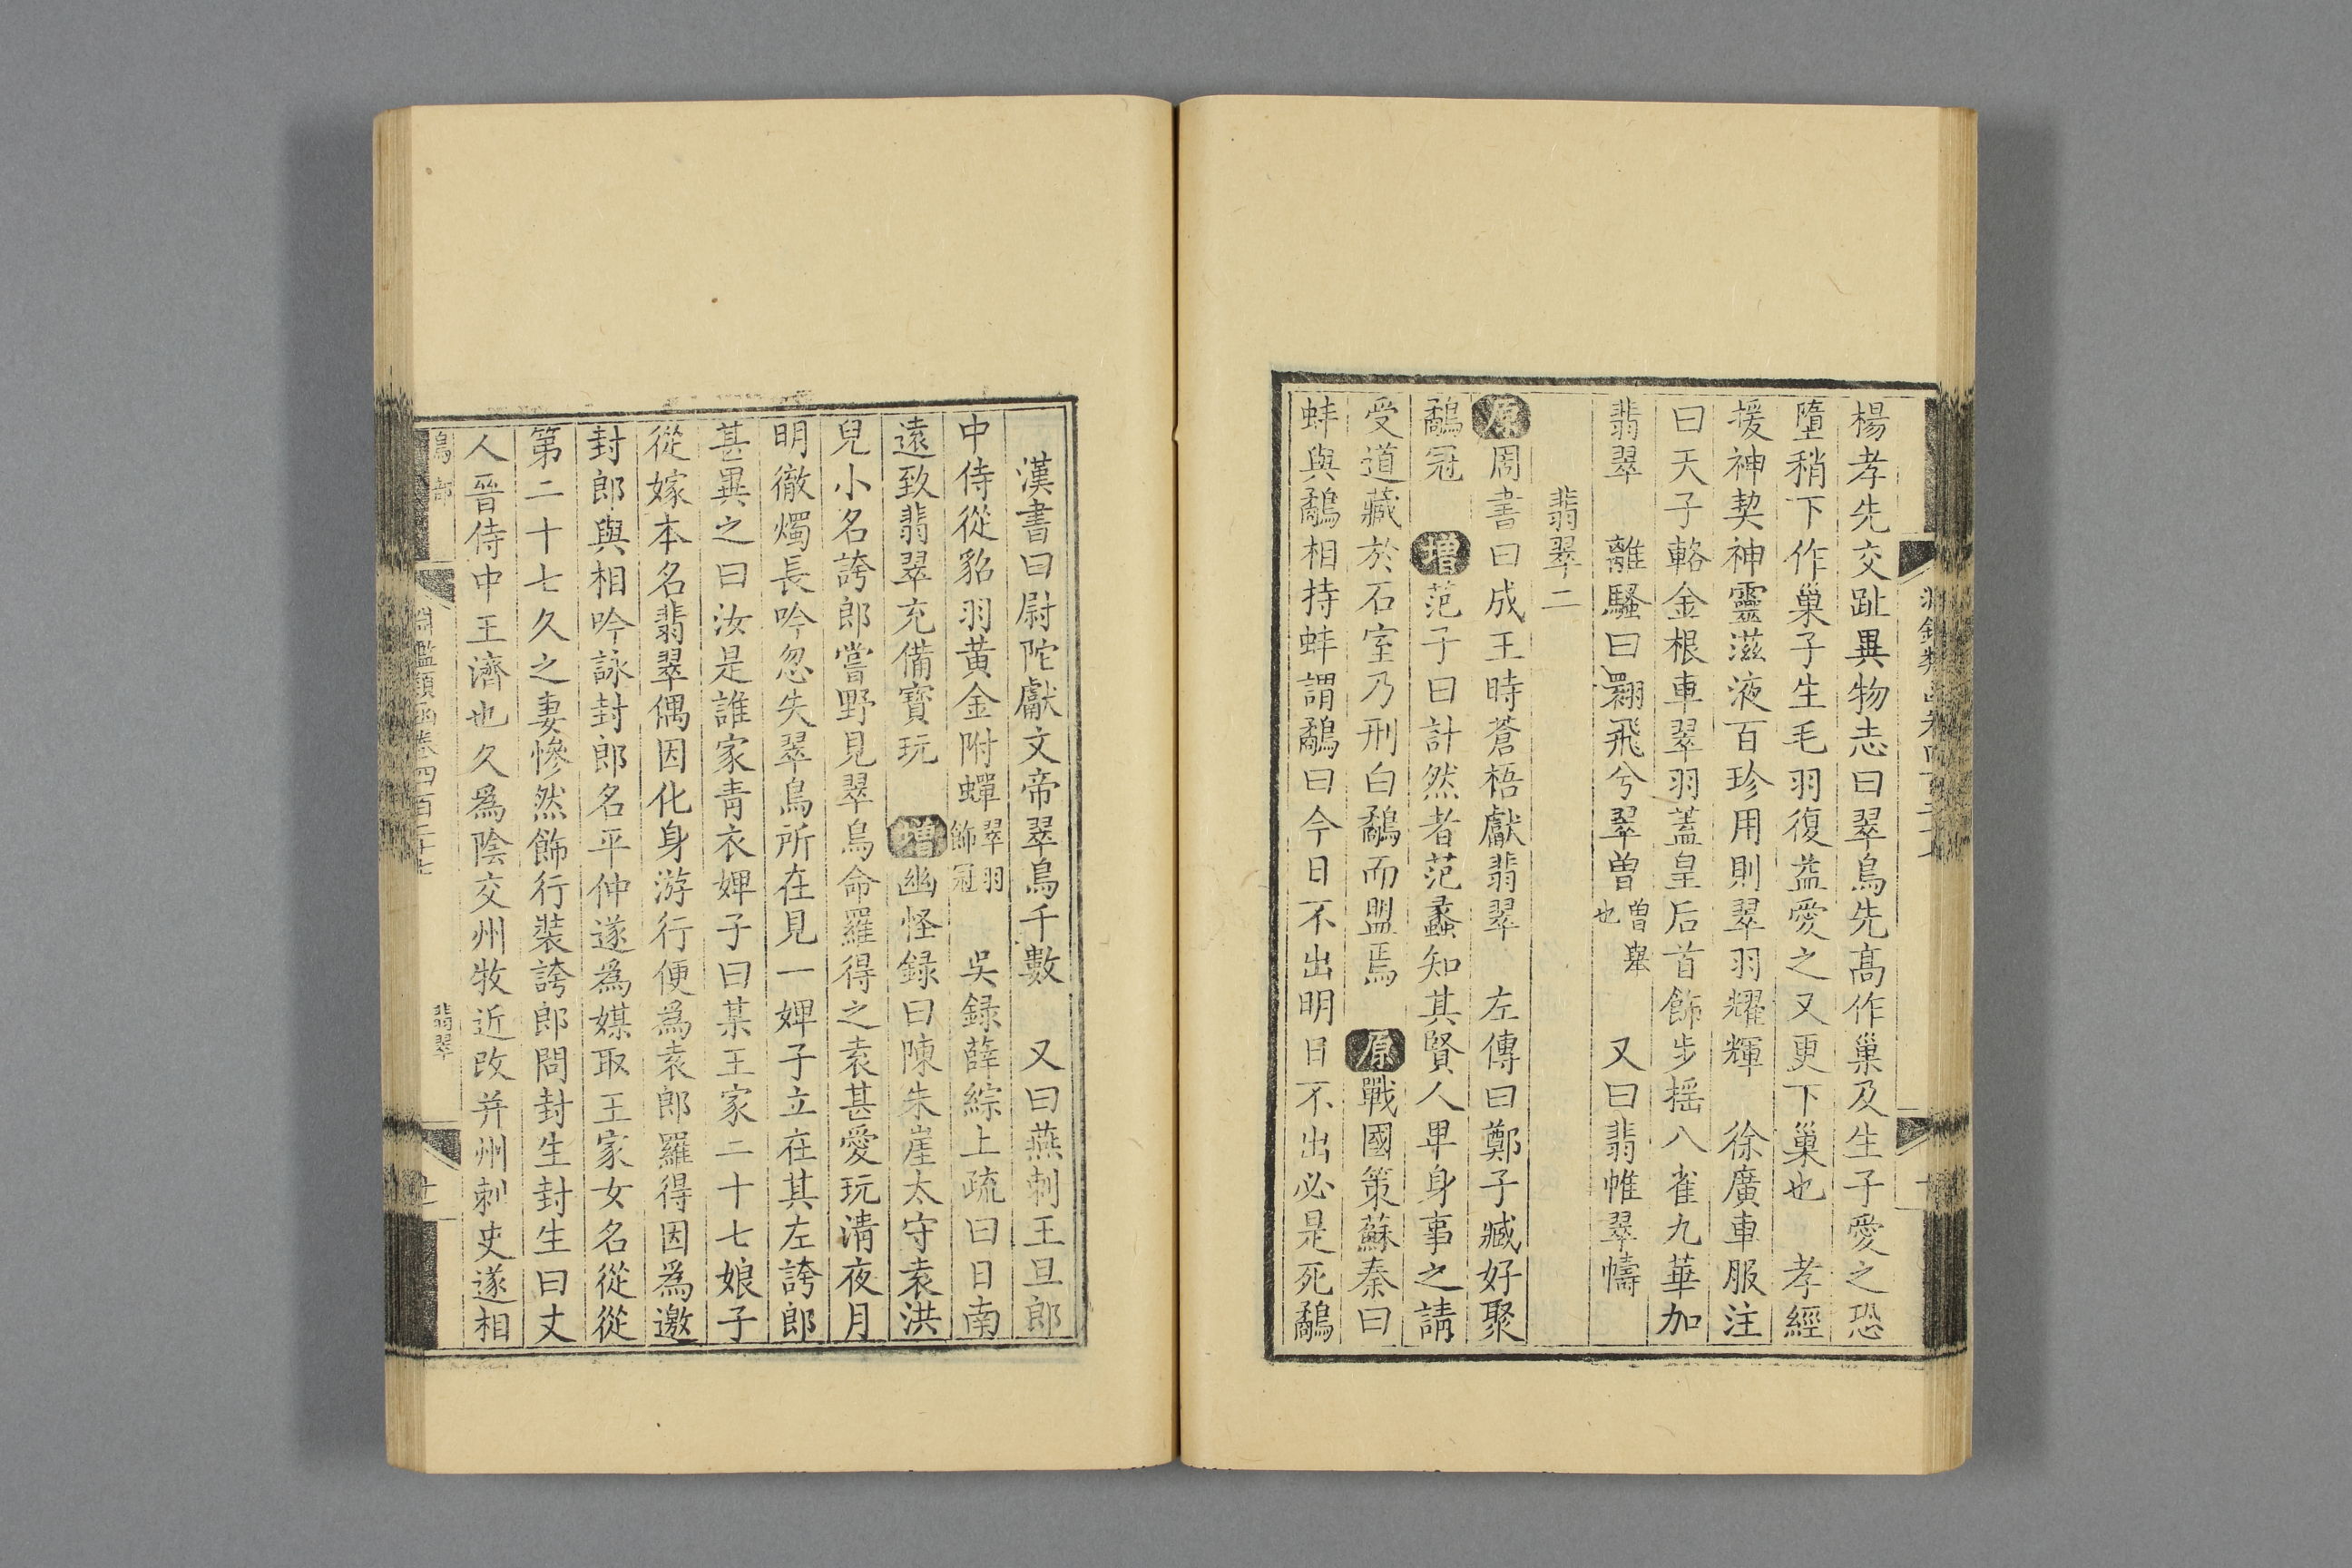 楊孝先交趾異物志曰翠鳥先高作巢及生子愛之恐
墮稍下作巢子生毛羽復益愛之又更下巢也　孝經
援神契神靈滋液百珍用則翠羽耀輝　徐廣車服注
曰天子輅金根車翠羽蓋皇后首飾步搖八雀九華加
翡翠　離騷曰翾飛兮翠曾曾舉也　又曰翡帷翠幬
翡翠二
原周書曰成王時蒼梧獻翡翠　左傳曰鄭子臧好聚
鷸冠　增范子曰計然者范蠡知其賢人卑身事之請
受道藏於石室乃刑白鷸而盟焉　原戰國策蘇秦曰
蚌與鷸相持蚌謂鷸曰今日不出明日不出必是死鷸
漢書曰尉陀獻文帝翠鳥千數　又曰燕刺王旦郎
中侍從貂羽黃金附蟬翠羽飾冠　吳錄薛綜上疏曰日南
遠致翡翠充備寶玩　增幽怪録曰陳朱崖太守袁洪
兒小名誇郎嘗野見翠鳥命羅得之袁甚愛玩清夜月
明徹燭長吟忽失翠鳥所在見一婢子立在其左誇郎
甚異之曰汝是誰家青衣婢子曰某王家二十七娘子
從嫁本名翡翠偶因化身游行便為袁郎羅得因為邀
封郎與相吟詠封郎名平仲遂為媒取王家女名從從
第二十七久之妻慘然飾行裝誇郎問封生封生曰丈
人晉侍中王濟也久為陰交州牧近改并州刺史遂相
鳥部
淵鑑類函卷四百二十七
翡翠